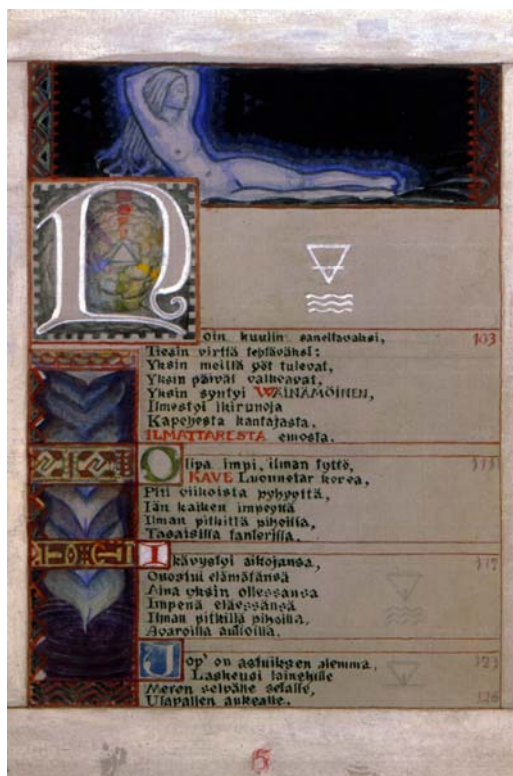 Noin kuulin saneltavaksi, 103
Tiesin virttä tehtäväksi:
Yksin meillä yöt tulevat,
Yksin päivät valkeavat,
Yksin syntyi WÄINÄMÖINEN,
Ilmestyi ikirunoja
Kapehesta kantajasta,
ILMATTARESTA emosta.
Olipa impi, ilman tyttö,
KAVE Luonnetar korea,
Piti viikoista pyhyyttä,
Iän kaiken impeyttä
Ilman pitkillä pihoilla,
Tasaisilla tanterilla.
Ikävystyi aikojansa, 117
Ouostui elämätänsä
Aina yksin ollessansa
Impenä eläessänsä
Ilman pitkillä pihoilla,
Avaroilla autioilla.
Jop' on astuiksen alemma, 123
Laskeusi lainehille
Meren selvälle selälle,
Ulapallen aukealle. 126
5